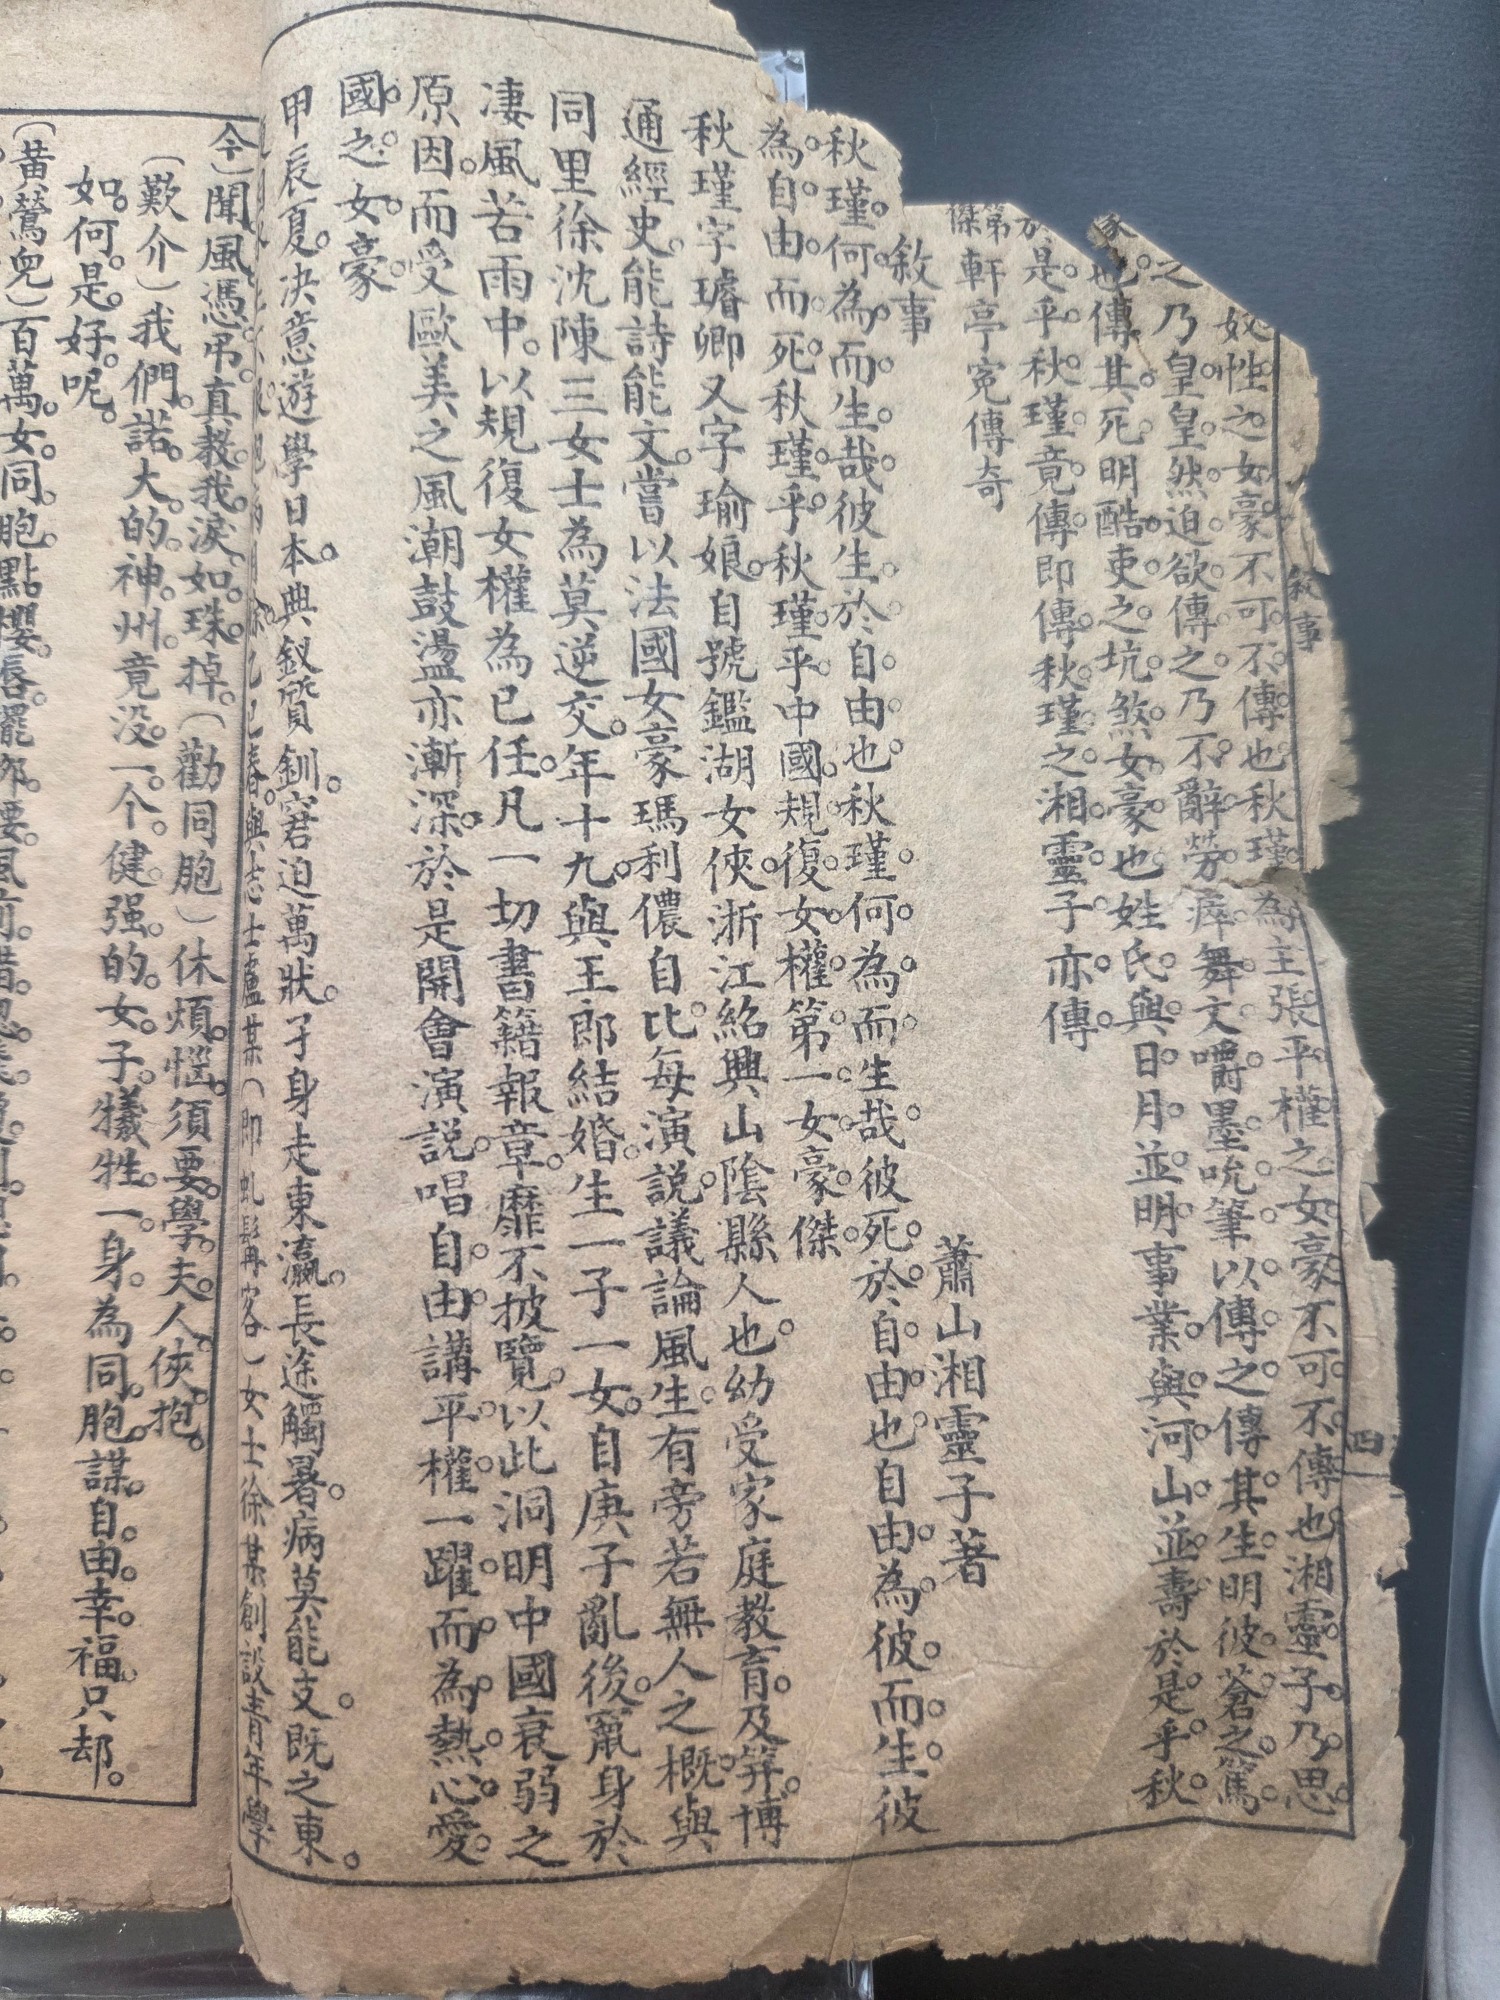 為主張平權之女豪不可不傳也湘靈子乃思
奴性之女豪不可不傳也秋瑾
之乃皇皇然迫欲傳之乃不辭勞瘁舞文嚼墨吮筆以傳之傳其生明彼蒼之篤
也傳其死明酷吏之坑煞女豪也姓氏與日月並明事業與河山並壽於是乎秋
於是乎秋瑾竟傳即傳秋瑾之湘靈子亦傳
第
傑
軒亭寃傳奇
蕭山湘靈子著
敘事
秋瑾何為而生哉彼生於自由也秋瑾何為而生哉彼死於自由也自由為彼而生彼
為自由而死秋瑾乎秋瑾乎中國規復女權第一女豪傑
秋瑾字璿卿又字瑜娘自號鑑湖女俠浙江紹興山陰縣人也幼受家庭教育及筓博
通經史能詩能文嘗以法國女豪瑪利儂自比每演說議論風生有旁若無人之概與
同里徐沈陳三女士為莫逆交年十九與王郎結婚生一子一女自庚子亂後竄身於
凄風若雨中以規復女權為已任凡一切書籍報章靡不披覽以此洞明中國衰弱之
原因而受歐美之風潮鼓盪亦漸深於是開會演説唱自由講平權一躍而為熱心愛
國之女豪
甲辰夏决意遊學日本典釵質釧窘迫萬狀孑身走東瀛長途觸暑病莫能支既之東
乙巳春與志士盧某（即虬髯客）女士徐某創設青年學
敘事
四
今）聞風憑吊真教我淚如珠掉（勸同胞）休煩惱須要學夫人俠抱
（歎介）我們諾大的神州竟没一个健强的女子犧牲一身為同胞謀自由幸福只却
如何是好呢
（黃鶯兒）百萬女同胞點櫻唇擺柳腰風前